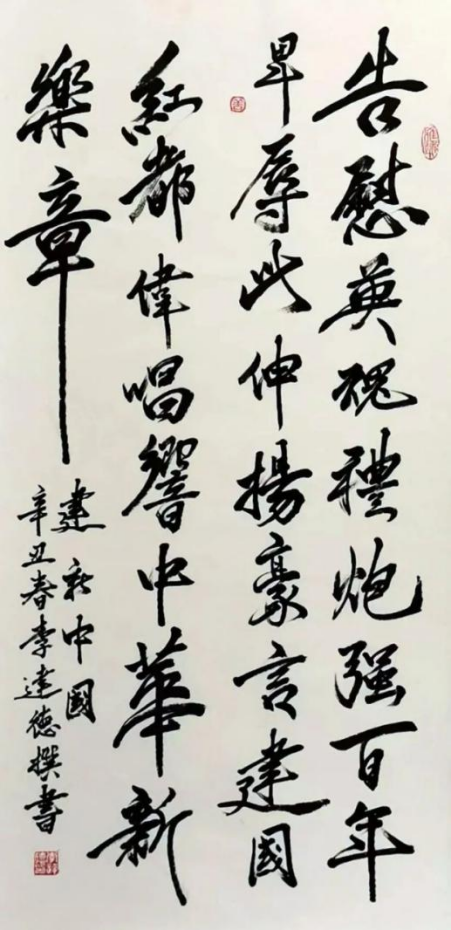 告慰英魂禮炮强百年
卑辱此伸揚豪言建國
紅都偉唱響中華新
樂章
建新中國
辛丑春李建德撰書